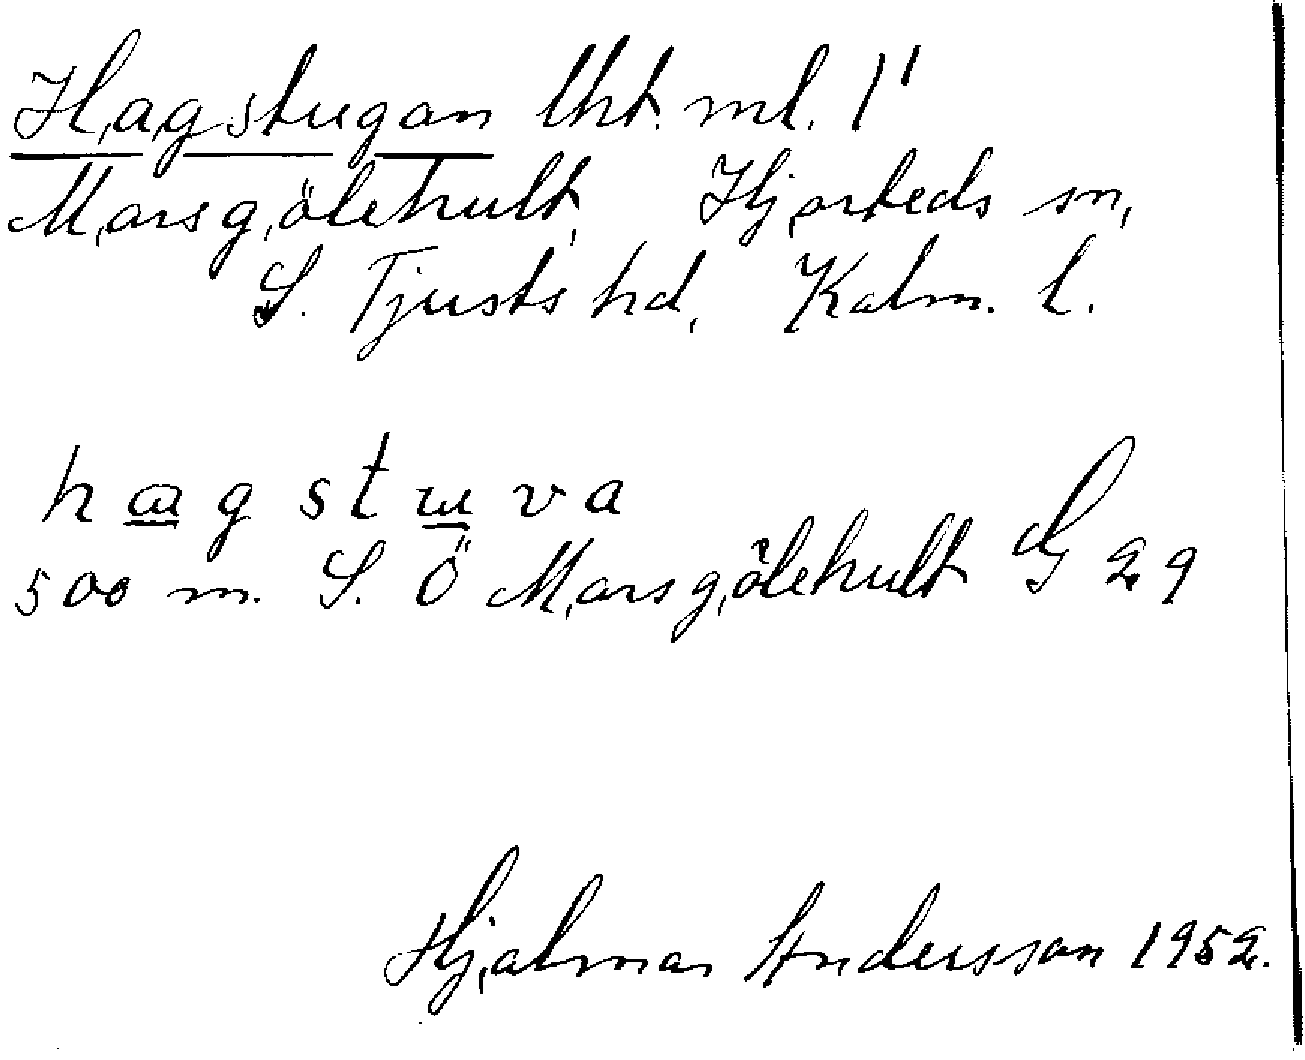 Hagstugan lht. ml. 1'
Marsgölehult, Hjorteds sn,
S. Tjusts hd, Kalm. l.
hagstuva
500 m. S. Ö Marsgölehult G 29
Hjalmar Andersson 1952.